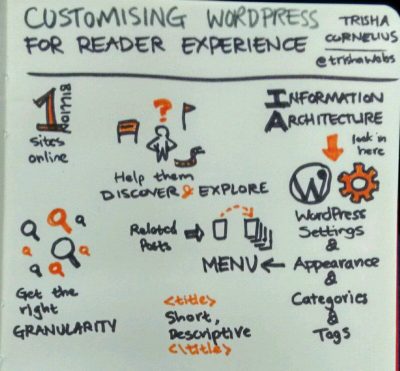 CUSTOMISING WORDPRESS
FOR READER EXPERIENCE
TRISHA
CORNELIUS
@trishawebs
1 BILLION
sites
online
?
Help them
DISCOVER & EXPLORE
INFORMATION
ARCHITECTURE
look in
here
W
WordPress
Settings
&
Appearance
&
Categories
&
Tags
Related
Posts
MENU
Get the
right
GRANULARITY
<title>
Short,
Descriptive
<\title>